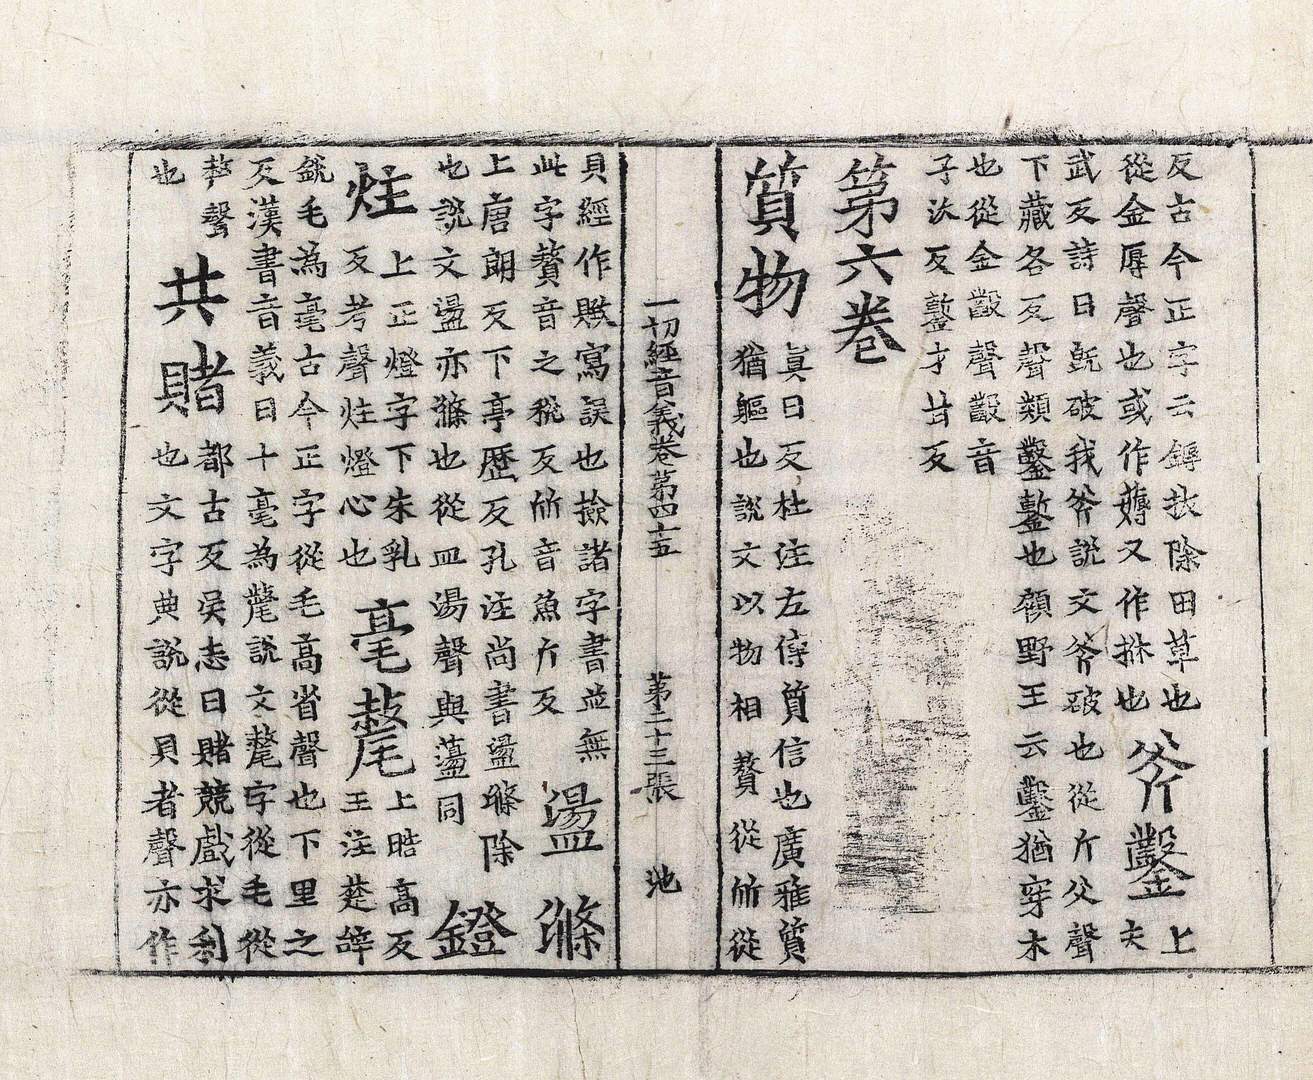 反古今正字云鎒拔除田草也
從金辱聲也或作薅又作𢬃也
斧鑿
上夫
武反詩曰旣破我斧說文斧破也從斤父聲
下藏各反聲類鑿鏨也顧野王云鑿猶穿木
也從金𣫞聲𣫞音
子洓反鏨才甘反
第六卷
質物
眞日反杜注左傳質信也廣雅質
猶軀也說文以物相贅從斦從
一切經音義卷第四十五 第二十三張 池
貝經作䝱寫誤也撿諸字書並無
此字贅音之稅反斦音魚斤反
盪滌
上唐朗反下亭歷反孔注尚書盪滌除
也說文盪亦滌也從皿湯聲與蕩同
鐙炷
上正燈字下朱乳
反考聲炷燈心也
毫氂
上皓高反
王注楚辭
銳毛為毫古今正字從毛高省聲也下里之
反漢書音義曰十毫為氂說文氂字從毛從
𠩺聲
也
共賭
都古反吳志曰賭競戲求利
也文字典說從貝者聲亦作